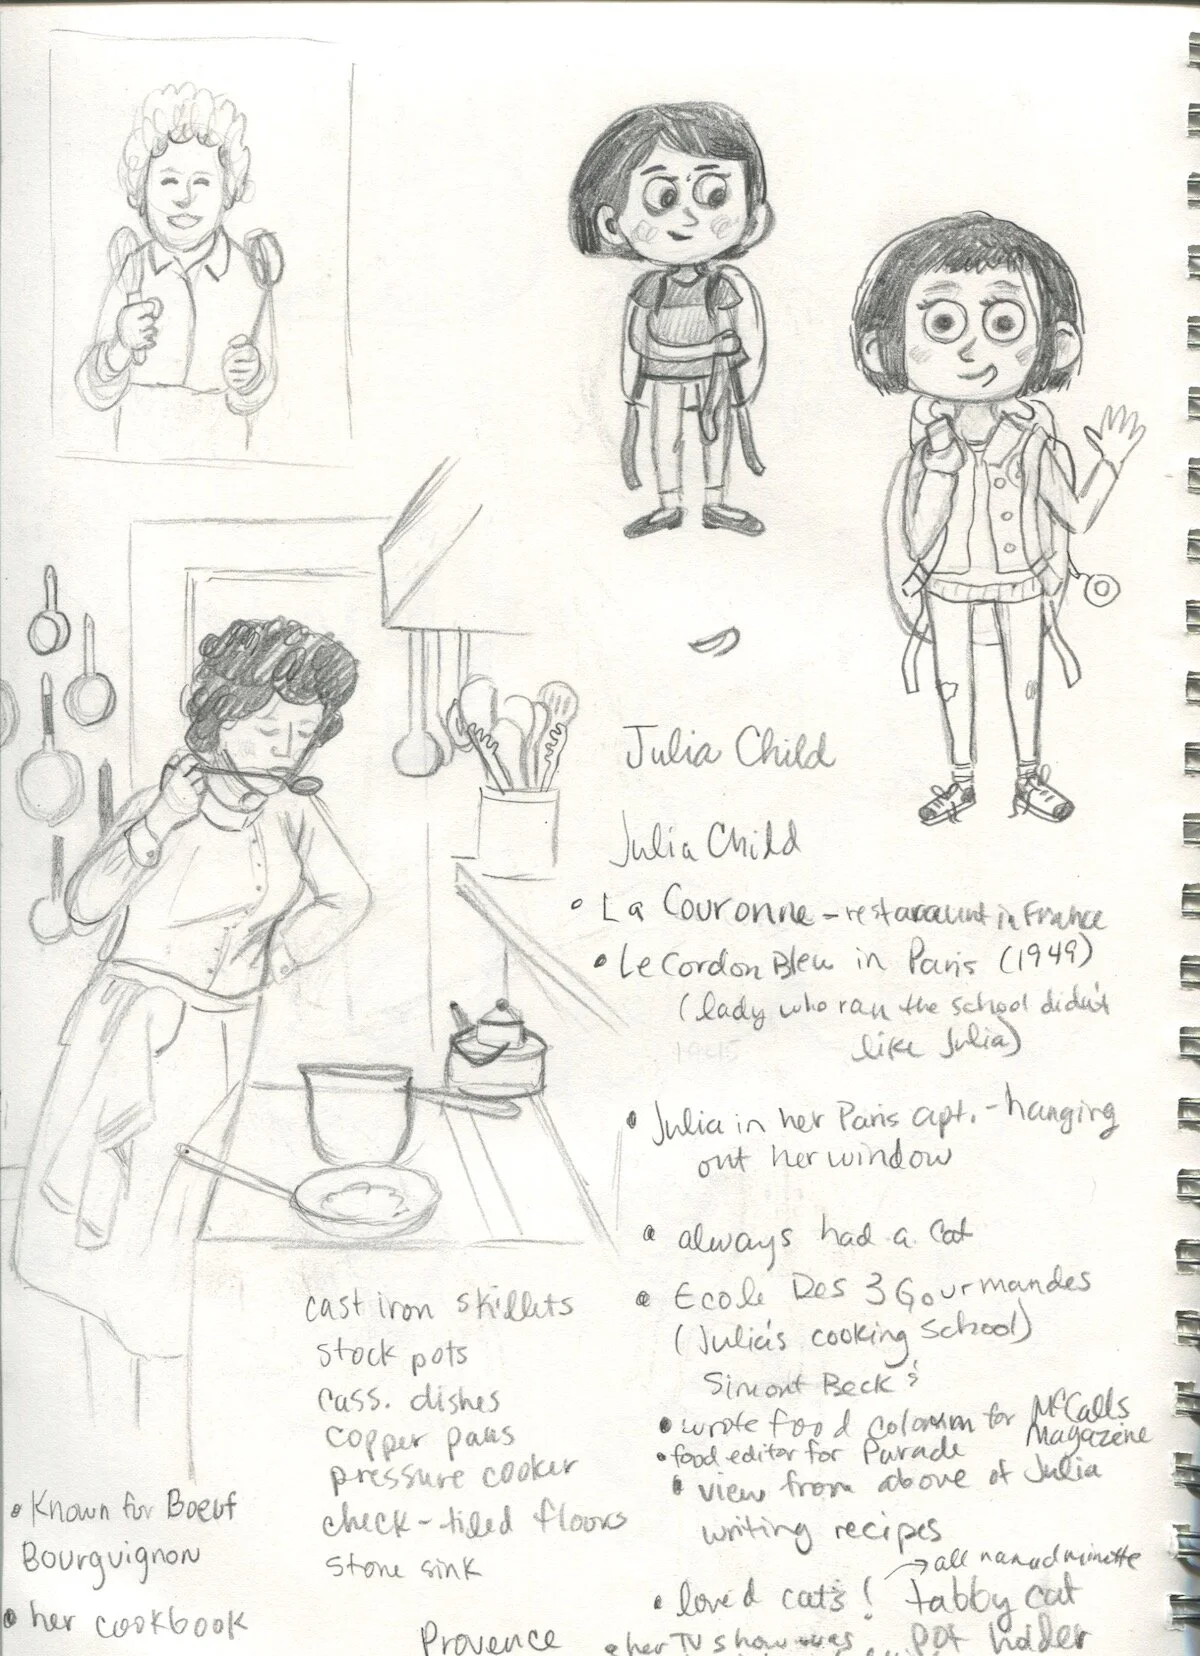 Julia Child
Julia Child
• La Couronne – restaraunt in France
• Le Cordon Bleu in Paris (1949)
(lady who ran the school didn't
like Julia)
1945
• Julia in her Paris apt. - hanging
out her window
• always had a cat
• Ecole Des 3 Gourmandes
(Julia's cooking school)
Simont Beck's
• wrote food colomn for McCalls
Magazene
• food editor for Parade
• view from above of Julia
writing recipes
→ all named minette
• loved cats! tabby cat
• her TV show was pot holder
cast iron skillets
stock pots
cass. dishes
copper pans
pressure cooker
check-tiled floors
stone sink
Provence
• Known for Boeuf
Bourguignon
• her cookbook